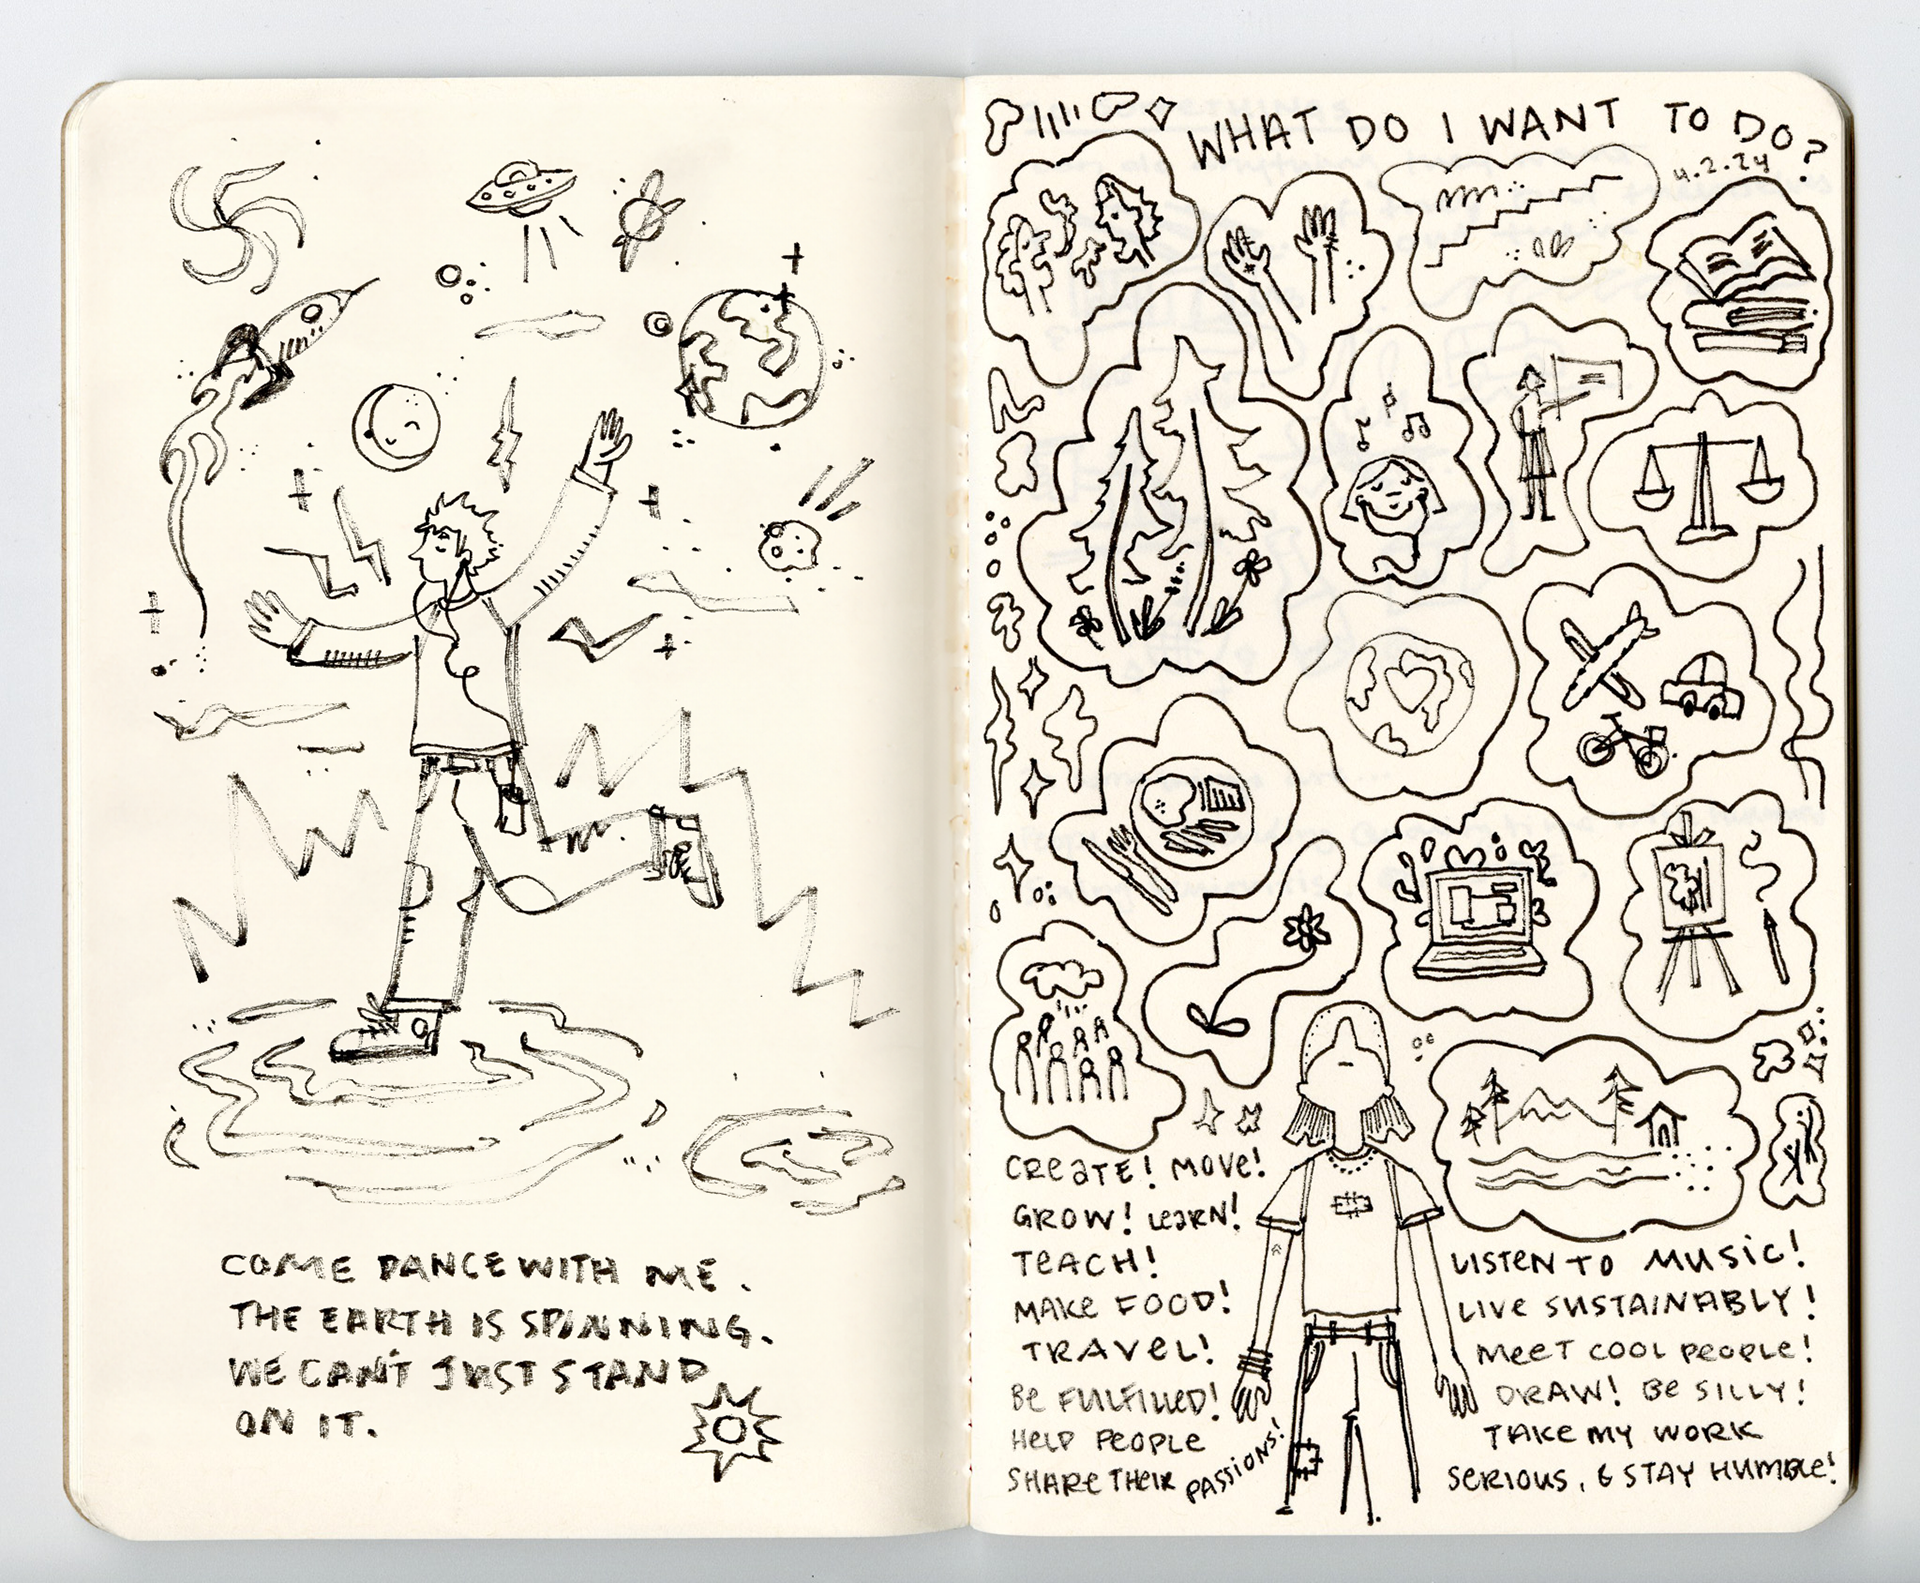 COME DANCE WITH ME.
THE EARTH IS SPINNING.
WE CAN'T JUST STAND
ON IT.
WHAT DO I WANT TO DO?
4.2.24
CREATE! MOVE!
GROW! LEARN!
TEACH!
MAKE FOOD!
TRAVEL!
BE FULFILLED!
HELP PEOPLE
SHARE THEIR PASSIONS!
LISTEN TO MUSIC!
LIVE SUSTAINABLY!
MEET COOL PEOPLE!
DRAW! BE SILLY!
TAKE MY WORK
SERIOUS, & STAY HUMBLE!